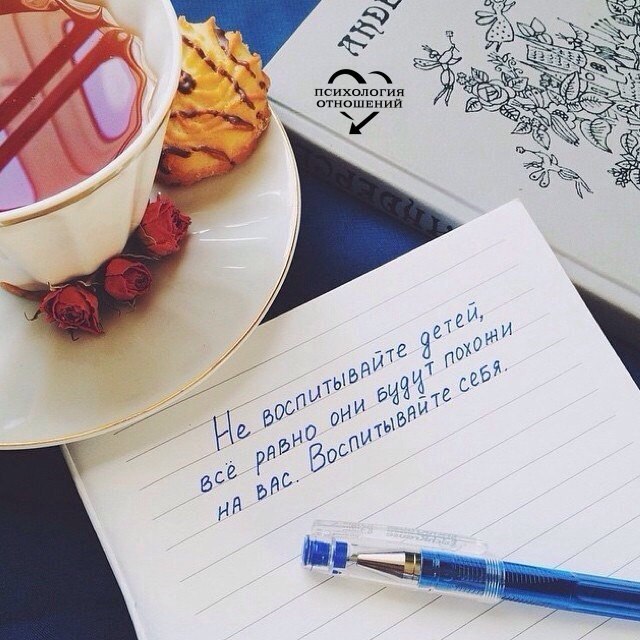 АНДЕ
ПСИХОЛОГИЯ
ОТНОШЕНИЙ
Не воспитывайте детей,
всё равно они будут похожи
на вас. Воспитывайте себя.